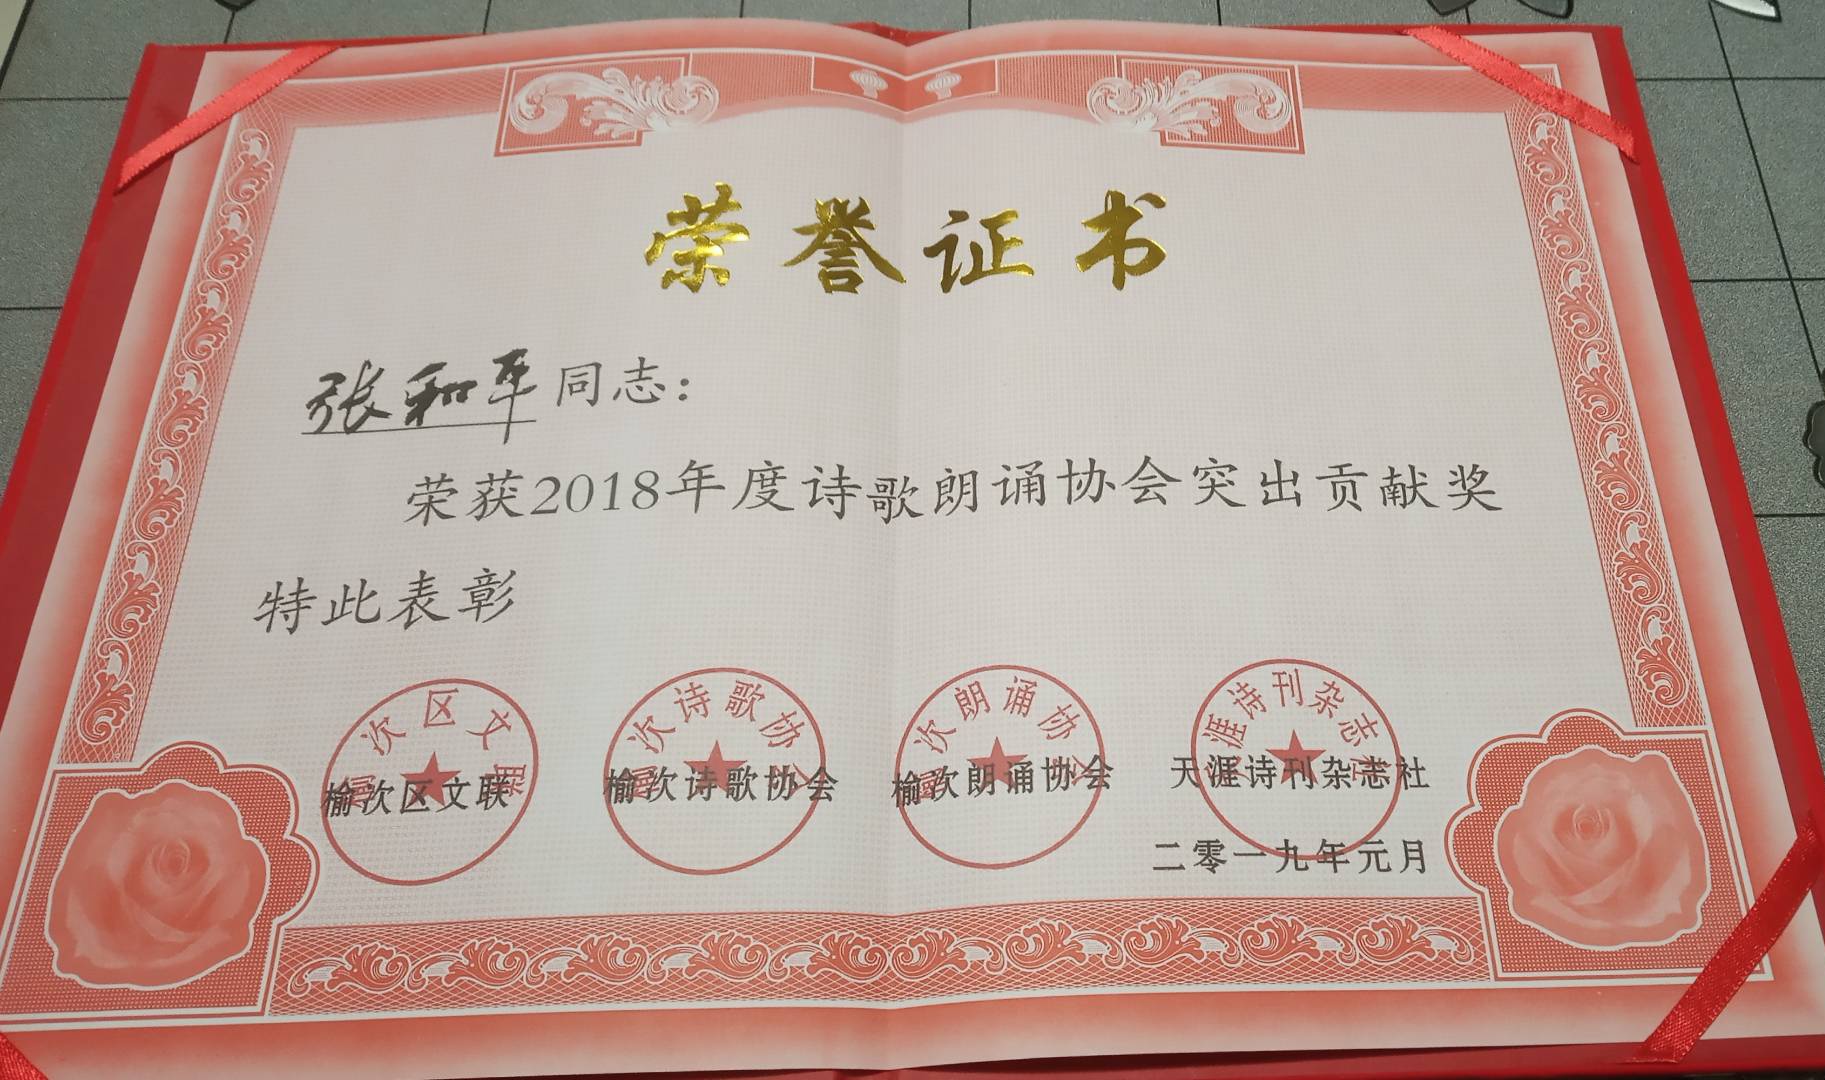 荣誉证书
张和平同志：
荣获2018年度诗歌朗诵协会突出贡献奖
特此表彰
次区文联
次诗歌协会
次朗诵协会
涯诗刊杂志社
榆次区文联 榆次诗歌协会 榆次朗诵协会 天涯诗刊杂志社
二零一九年元月